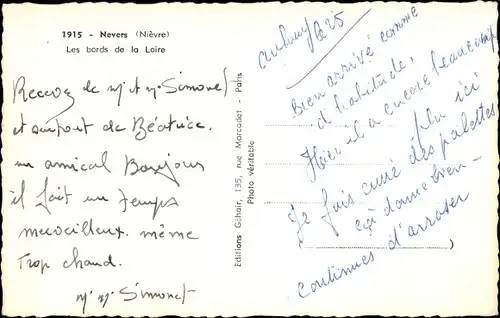 1915 - Nevers (Nièvre)
Les bords de la Loire
Recevez de Mr et Mme Simonet
et surtout de Béatrice.
un amical Bonjour
il fait un temps
merveilleux. même
trop chaud.
Mr Mme Simonet
Editions Gilhair, 135, rue Marcadet - Paris
Photo véritable
Bien arrivé comme
d'habitude,
Hier il a encore beaucoup
plu ici
Je fais des palettes
ça donne bien
continues d'arroser